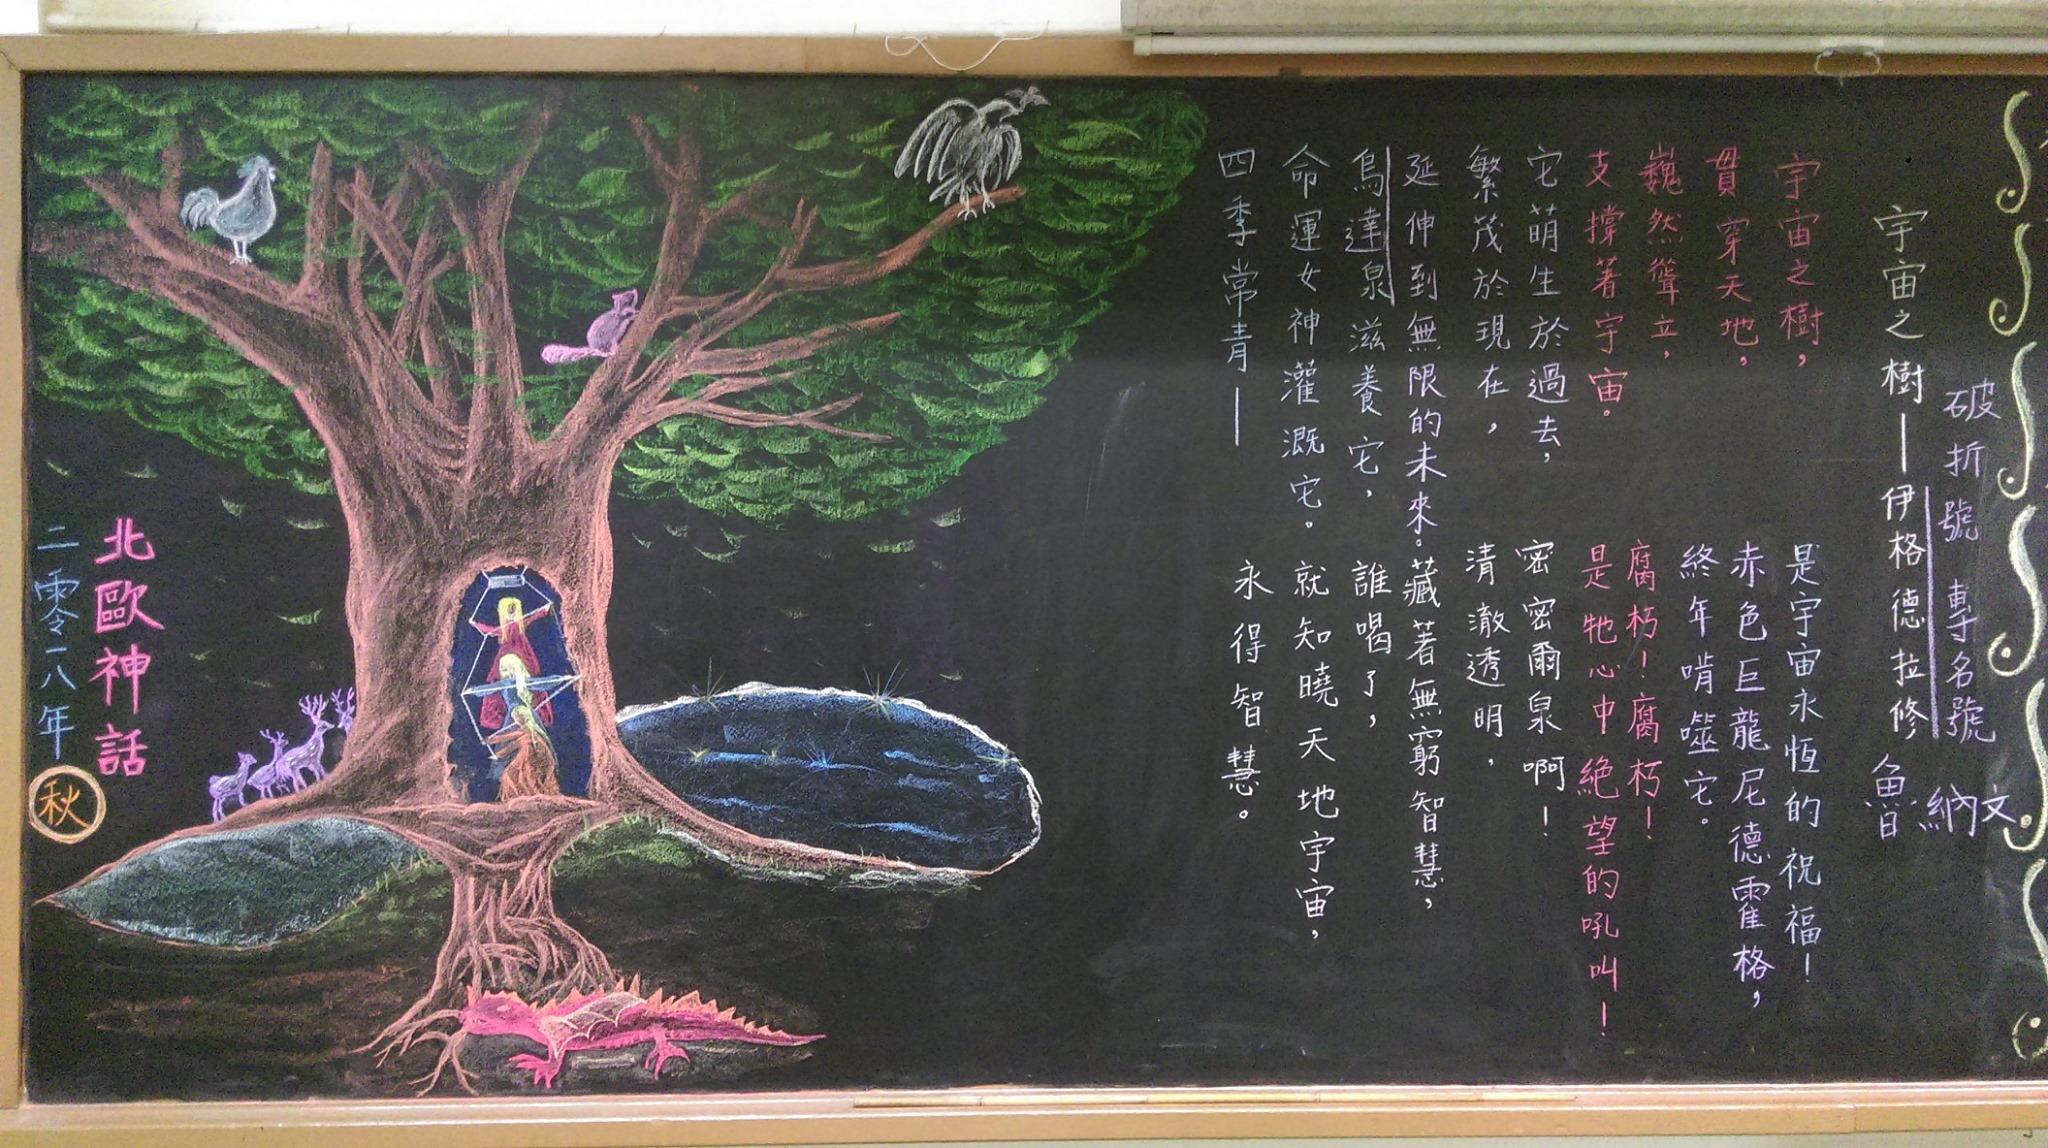 破折號 專名號
宇宙之樹—伊格德拉修
魯納文
宇宙之樹,
貫穿天地,
巍然聳立,
支撐著宇宙。
它萌生於過去,
繁茂於現在,
延伸到無限的未來。
烏達泉滋養它,
命運女神灌溉它。
四季常青—
是宇宙永恆的祝福!
赤色巨龍尼德霍格,
終年啃噬它。
腐朽!腐朽!
是牠心中絕望的吼叫!
密密爾泉啊!
清澈透明,
藏著無窮智慧,
誰喝了,
就知曉天地宇宙,
永得智慧。
北歐神話
二零一八年 秋